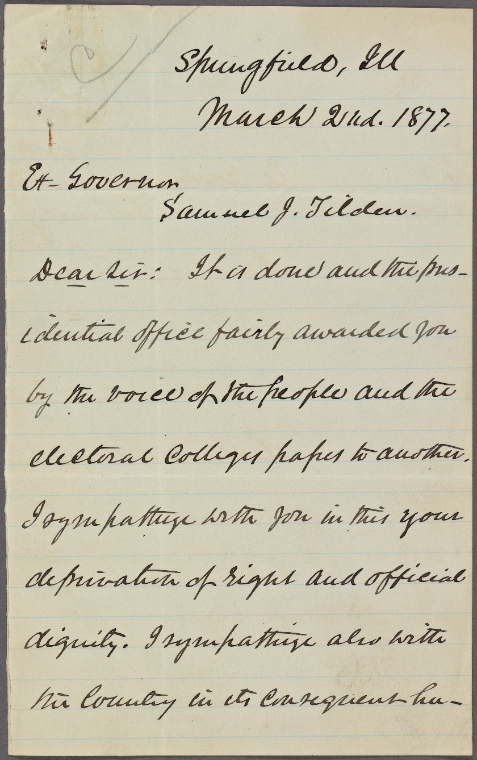 Springfield, Ill
March 2nd. 1877.
Ex-Governor
Samuel J. Tilden.
Dear Sir: It is done and the pres-
idential office fairly awarded you
by the voice of the people and the
electoral Colleges passes to another.
I sympathize with you in this your
deprivation of right and official
dignity. I sympathize also with
the Country in its consequent hu-